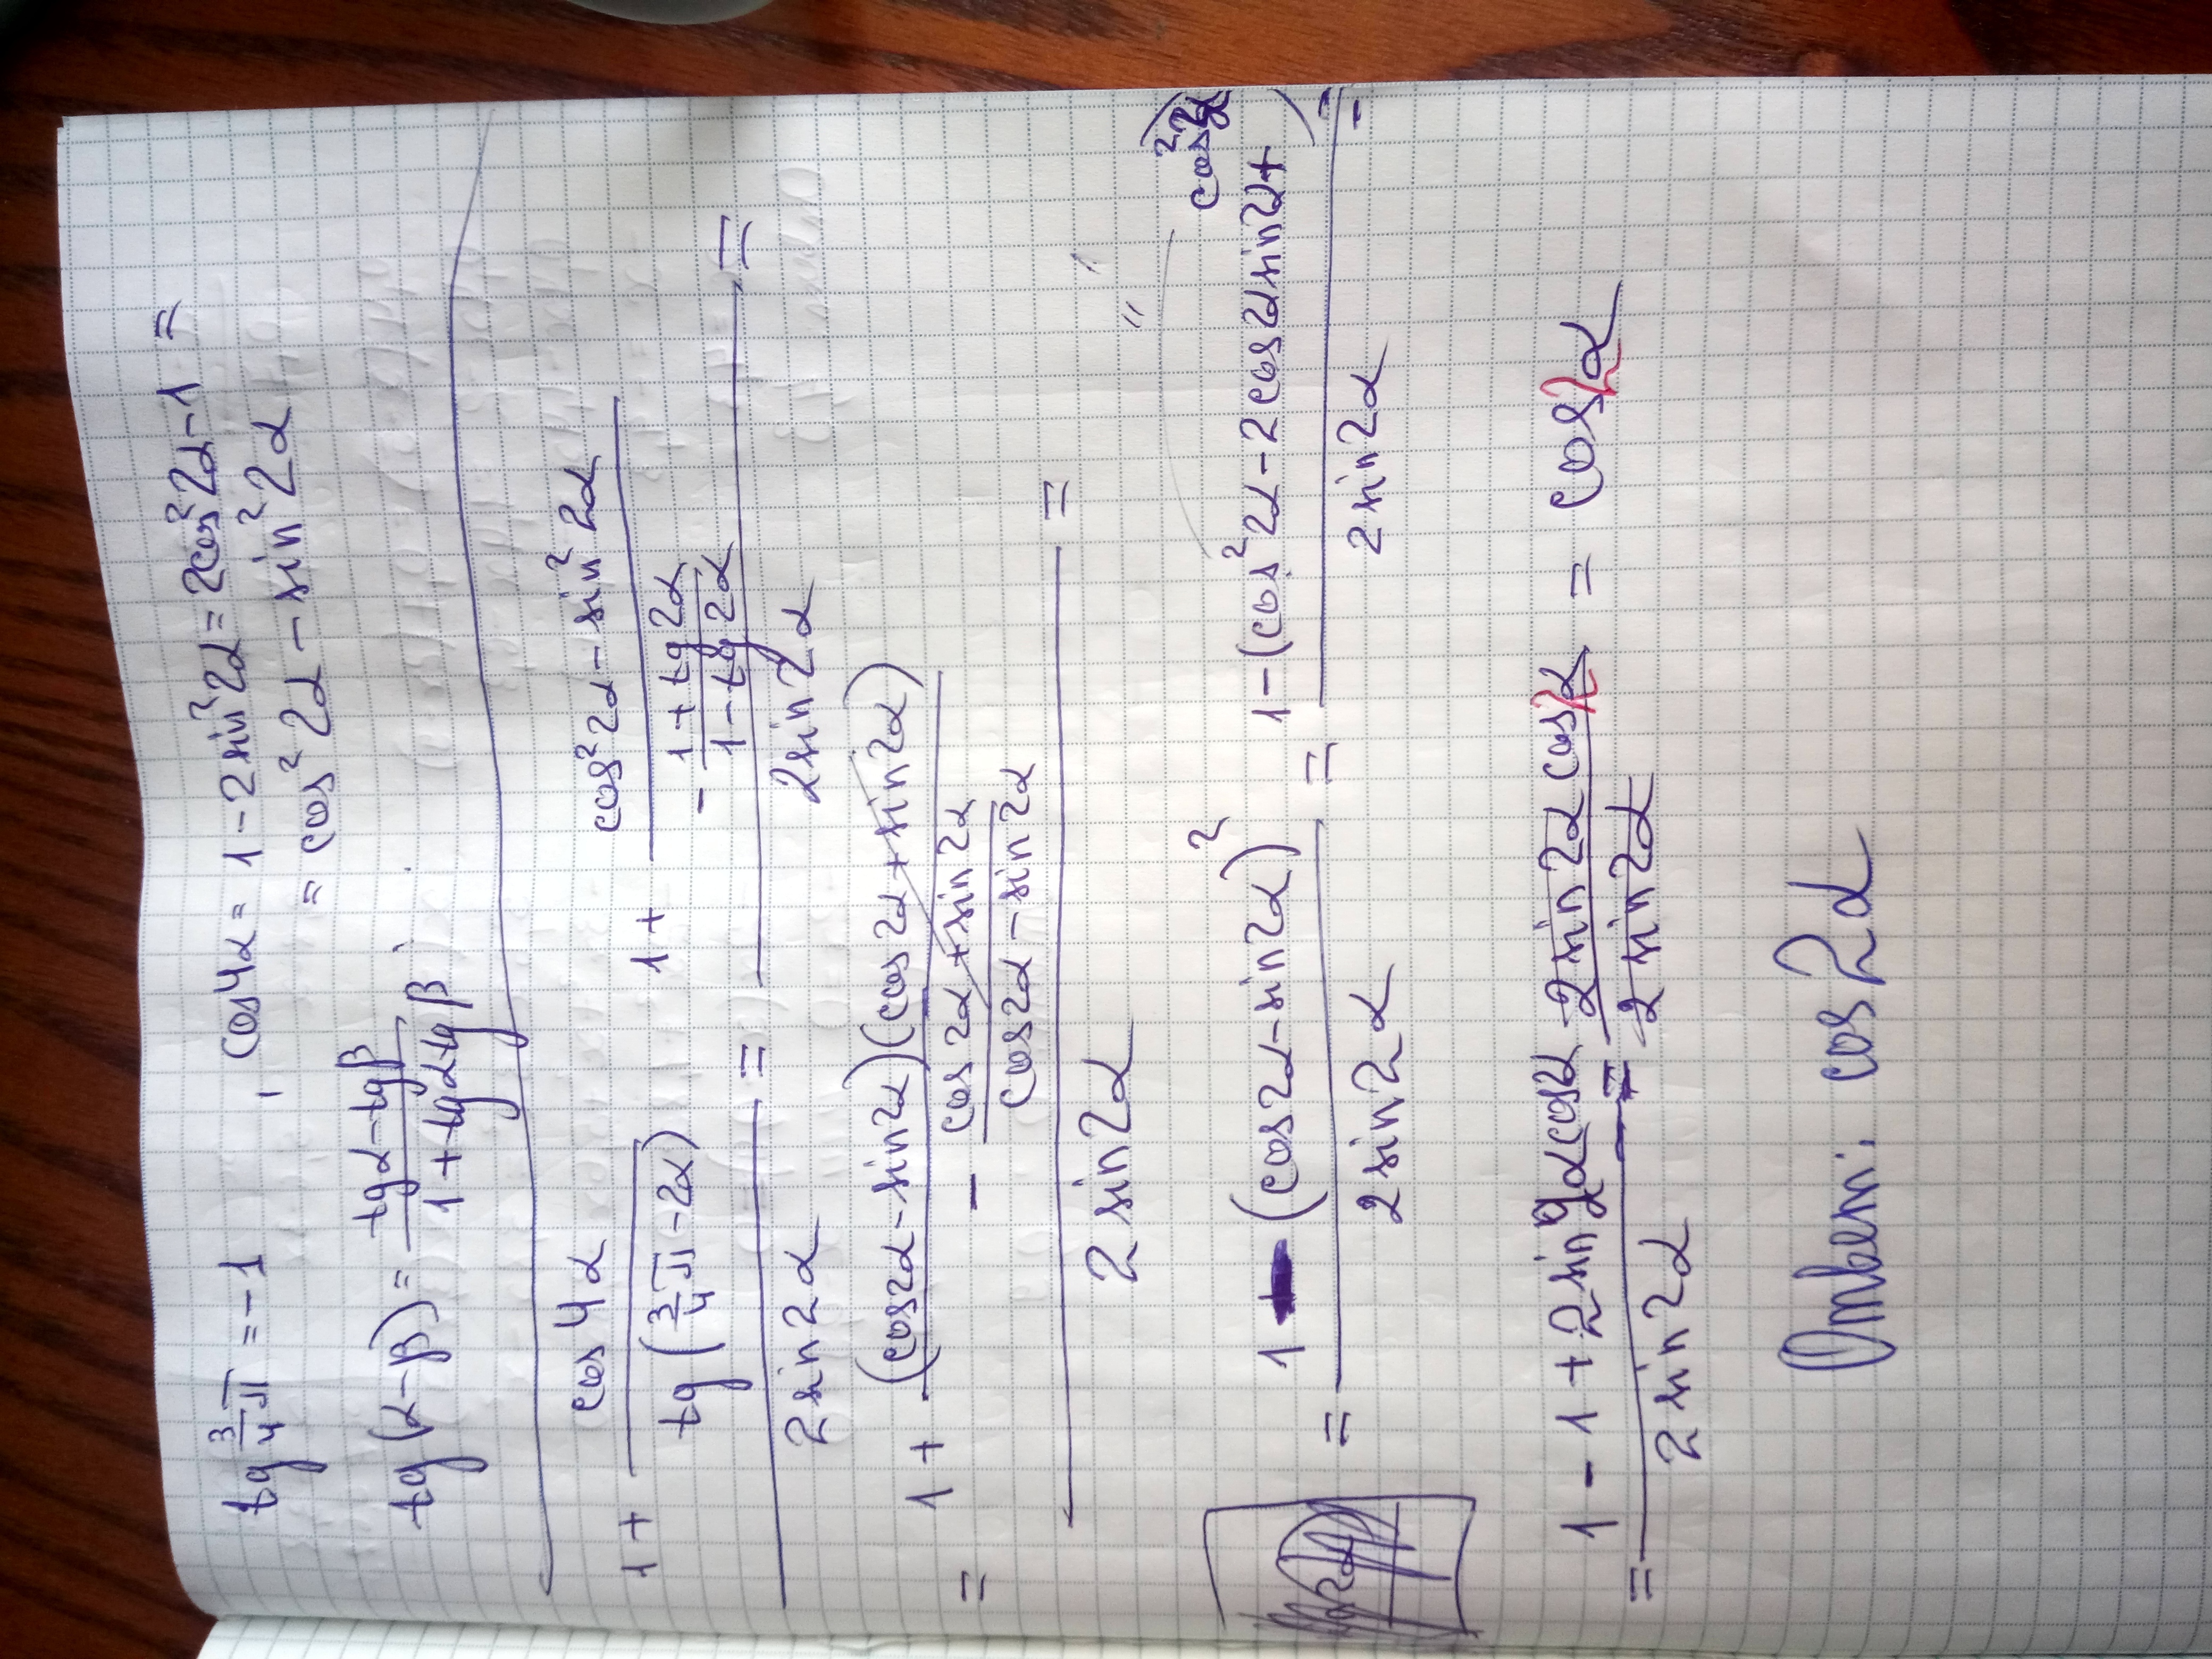 tg 3/4 π = -1, cos4α = 1 - 2sin²2α = 2cos²2α - 1 =
= cos²2α - sin²2α
tg(α-β) = (tgα - tgβ)/(1 + tgα tgβ)
(1 + cos4α/(tg(3/4 π - 2α)))/(2sin2α) = (1 + (cos²2α - sin²2α)/(-(1+tg2α)/(1-tg2α)))/(2sin2α) =
= (1 + ((cos2α - sin2α)(cos2α + sin2α))/(-(cos2α + sin2α)/(cos2α - sin2α)))/(2sin2α) =
= (1 - (cos2α - sin2α)²)/(2sin2α) = (1 - (cos²2α - 2cos2αsin2α +
=
= (1 - 1 + 2sin2αcos2α)/(2sin2α) = (2sin2αcos2α)/(2sin2α) = cos2α
Ответ: cos2α